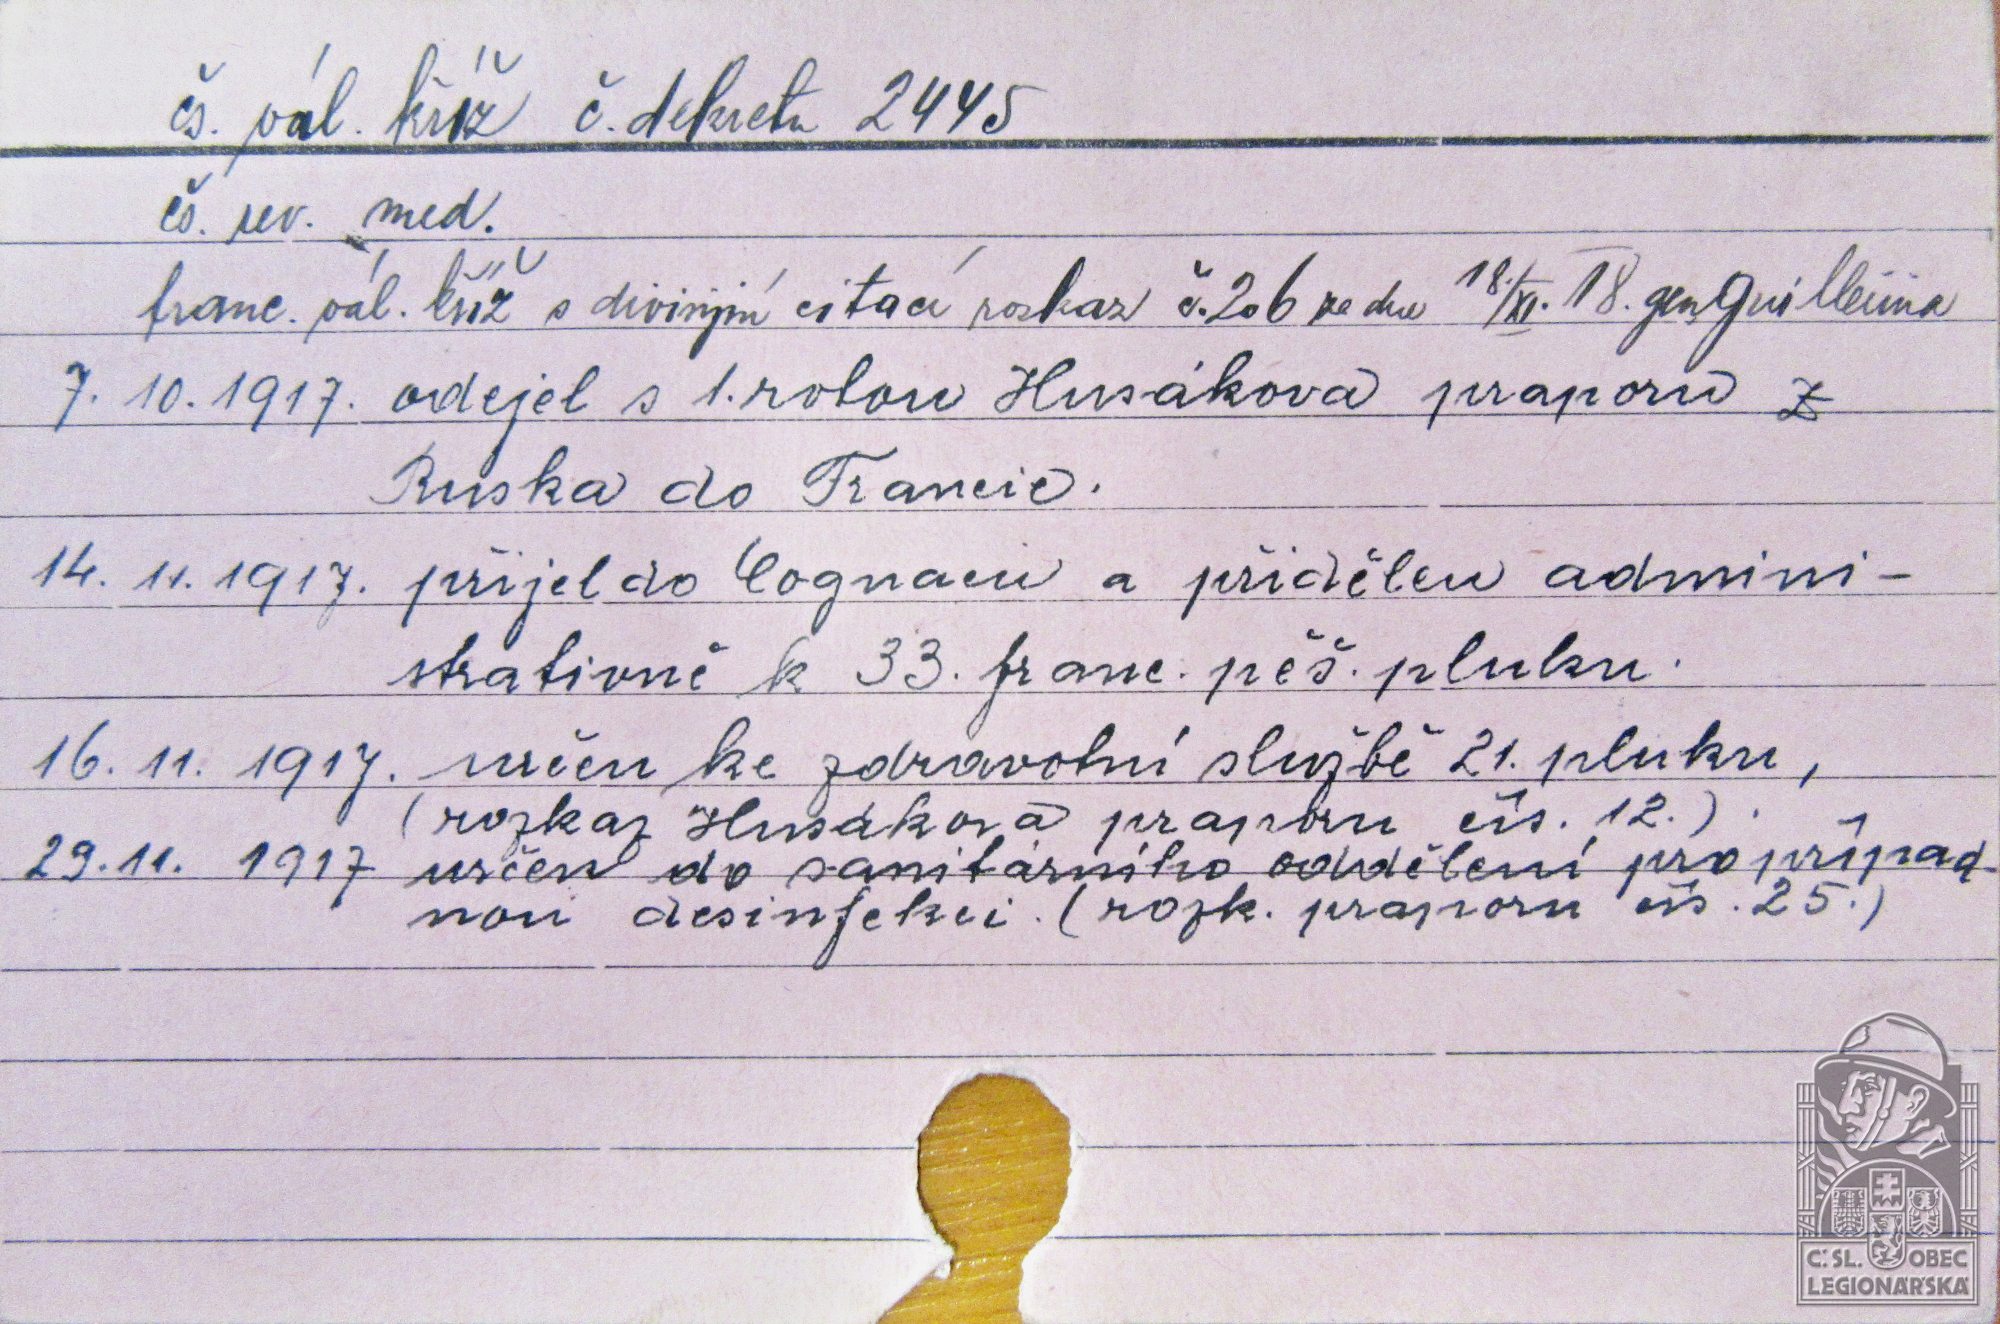 čs. vál. kříž č. dekretu 2445
čs. rev. med.
franc. vál. kříž s divisijní citací rozkaz č. 206 ze dne 18./XI. 18. gen Guillemina
7. 10. 1917. odejel s 1. rotou Husákova praporu z
Ruska do Francie.
14. 11. 1917. přijel do Cognacu a přidělen admini-
strativně k 33. franc. pěš. pluku.
16. 11. 1917. určen ke zdravotní službě 21. pluku,
(rozkaz Husákova praporu čís. 12.).
29. 11. 1917 určen do sanitárního oddělení pro případ-
nou desinfekci. (rozk. praporu čís. 25.)
Č. SL. OBEC
LEGIONÁŘSKÁ